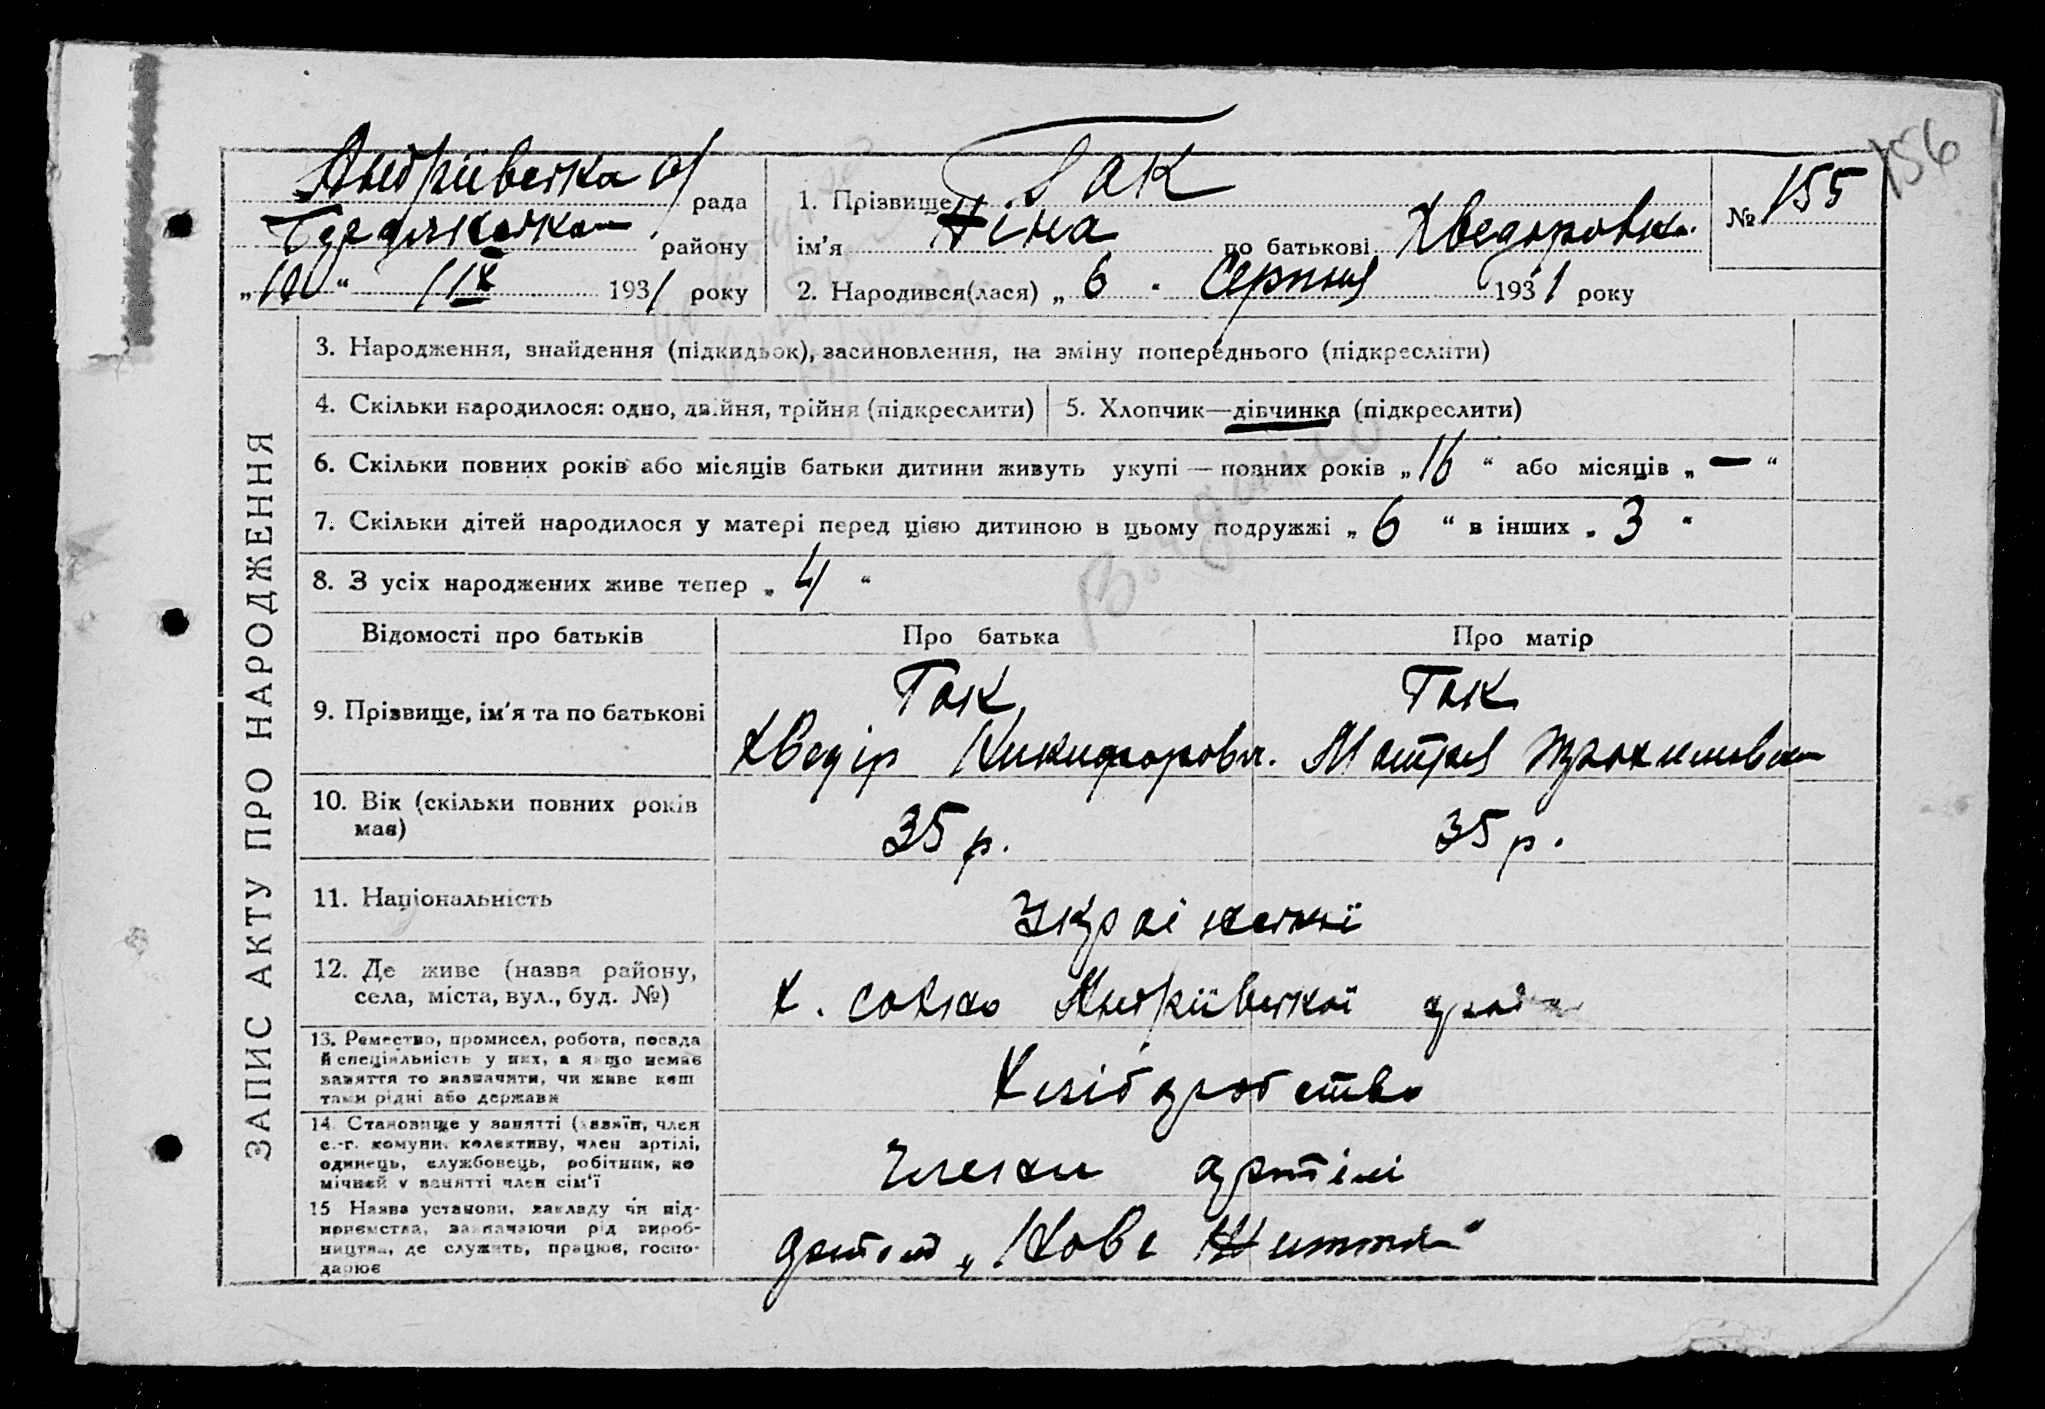 156
Андріївська с/ рада
району
„10“ IX 1931 року
1. Прізвище Гак
ім'я Ніна по батькові Хведоровна
2. Народився(лася) „6“ Серпня 1931 року
№ 155
ЗАПИС АКТУ ПРО НАРОДЖЕННЯ
3. Народження, знайдення (підкидьок), засиновлення, на зміну попереднього (підкреслити)
4. Скільки народилося: одно, двійня, трійня (підкреслити)
5. Хлопчик—дівчинка (підкреслити)
6. Скільки повних років або місяців батьки дитини живуть укупі — повних років „16“ або місяців „—“
7. Скільки дітей народилося у матері перед цією дитиною в цьому подружжі „6“ в інших „3“
8. З усіх народжених живе тепер „4“
Відомості про батьків Про батька Про матір
9. Прізвище, ім'я та по батькові
Гак
Хведір Никифорович.
Гак
Мотря
10. Вік (скільки повних років
має)
35 р. 35 р.
11. Національність
Українськиї
12. Де живе (назва району,
села, міста, вул., буд. №)
х. Андріївської ради
13. Ремество, промисел, робота, посада
й спеціяльність у них, а якщо немає
заняття то визначити, чи живе кош
тами рідні або держави
Хліборобство
14. Становище у занятті (хазяїн, член
с.-г. комуни, колективу, член артілі,
одинець, службовець, робітник, по
мічний у занятті член сім'ї
Члени артілі
15 Назва установи, закладу чи під-
приємства, зазначаючи рід вироб-
ництва, де служить, працює, госпо-
дарює
артіль „Нове Життя“